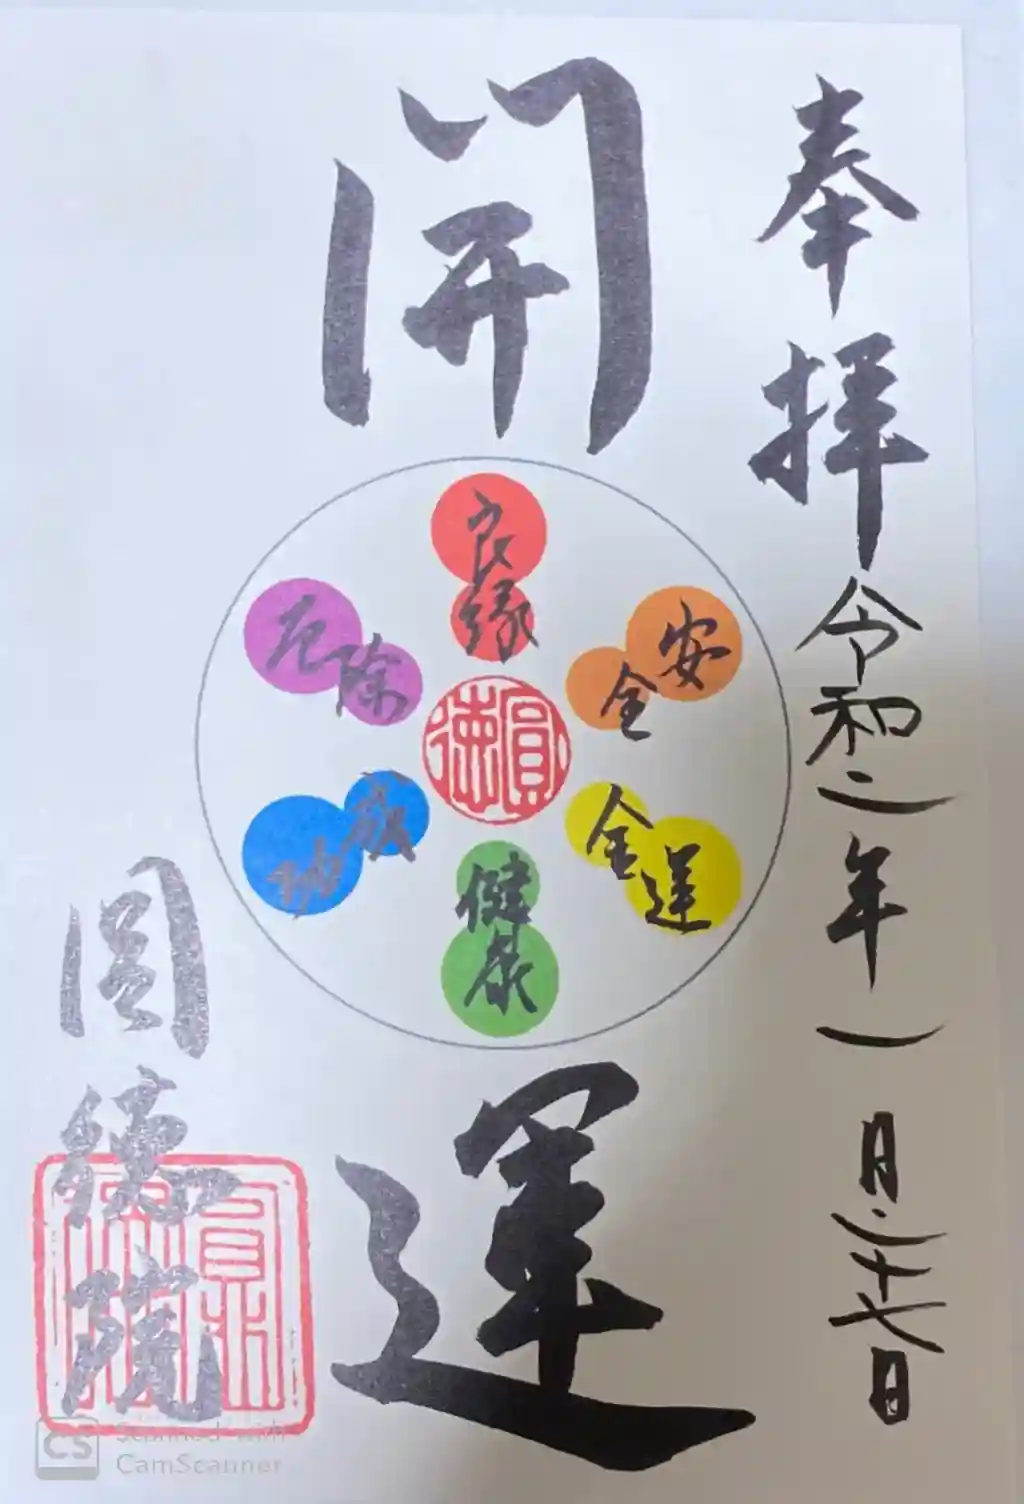 奉拝 令和二年一月二十七日
開運
良縁
安全
金運
健康
成功
厄除
圓徳
圓徳院
Scanned with
CamScanner
CS